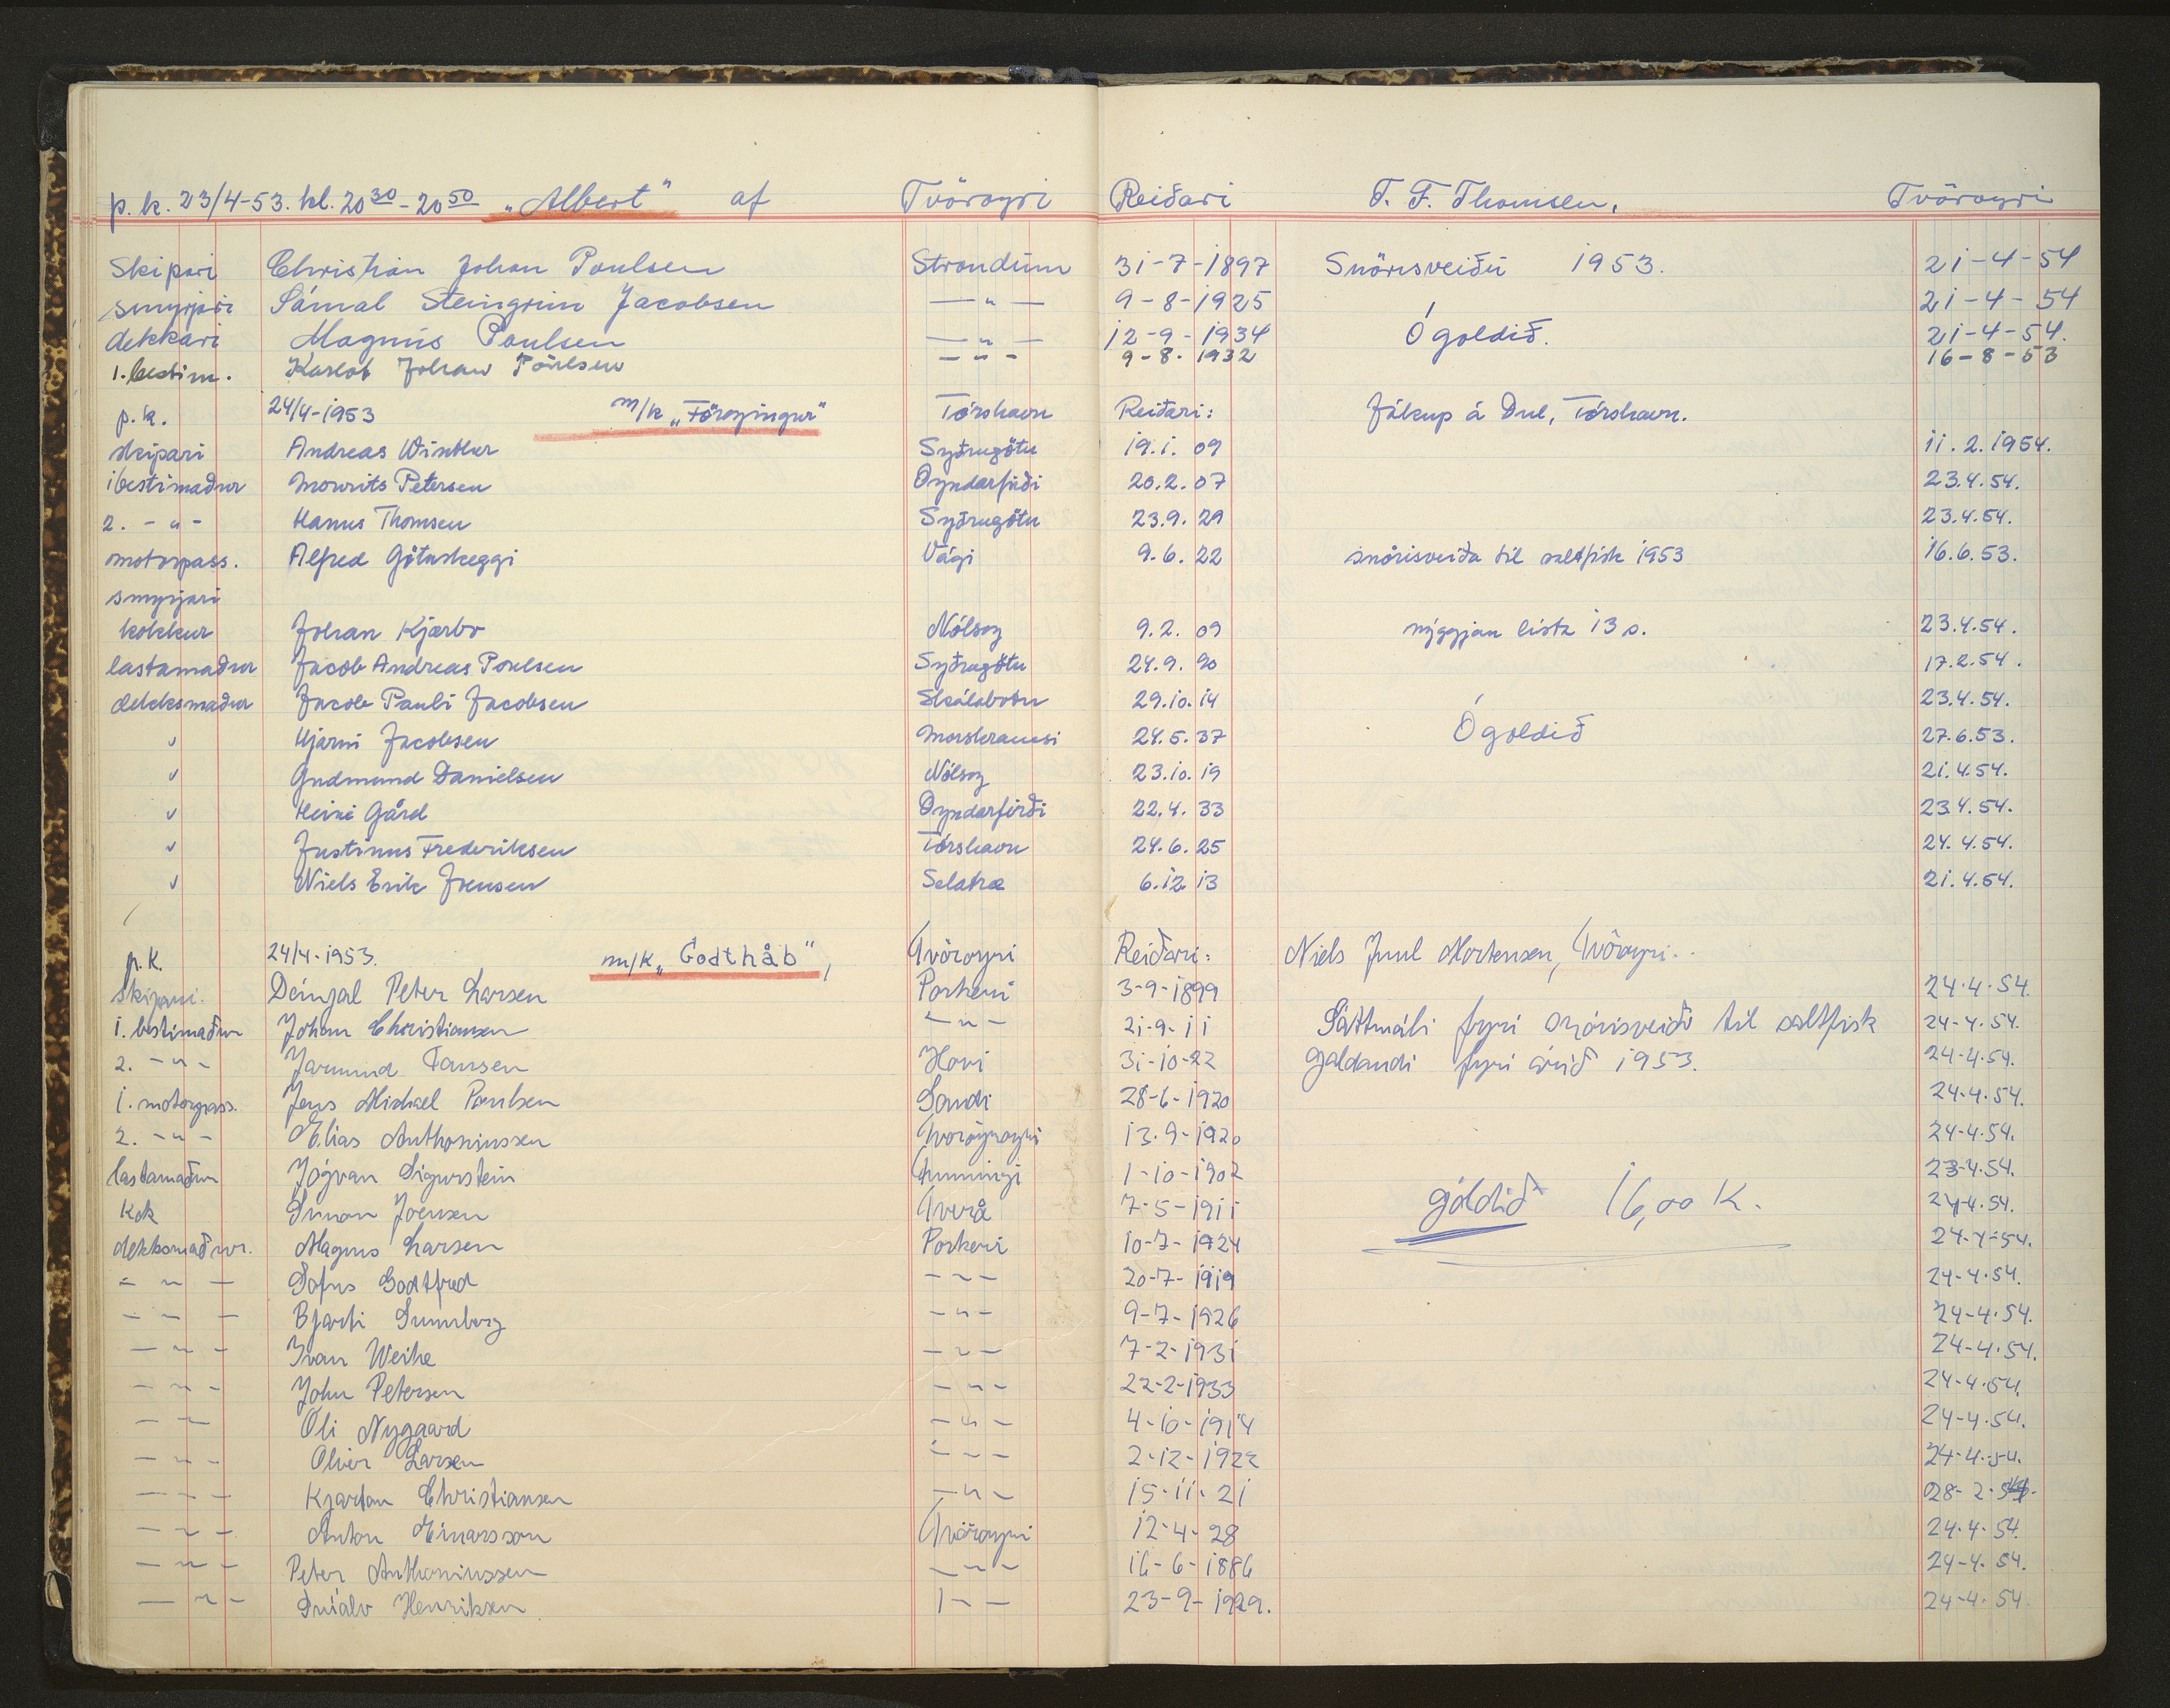 p. k. 23/4-53. kl. 20 30 - 20 50 „Albert" af Tvöroyri Reiðari T. F. Thomsen, Tvöroyri
Skipari Christian Johan Poulsen Strondum 31-7-1897 Snörisveiðu 1953. 21-4-54
smyrjari Sámal Steingrim Jacobsen — " — 9-8-1925 21-4-54
dekkari Magnus Poulsen — " — 12-9-1934 Ógoldið. 21-4-54.
1. bestim. Karlot Johan Poulsen - " - 9-8-1932 16-8-53
p.k. 24/4-1953 m/k „Föroyingur" Tórshavn Reiðari: Jákup á Dul, Tórshavn.
skipari Andreas Winther Syðrugötu 19.1.09 11.2.1954.
1 bestimaður Mowrits Petersen Oyndarfirði 20.2.07 23.4.54.
2. - " - Hanus Thomsen Syðrugötu 23.9.29 23.4.54.
motorpass. Alfred Götuskeggi Vági 9.6.22 snörisveiða til saltfisk 1953 16.6.53.
smyrjari
kokkur Johan Kjærbo Nólsoy 9.2.09 nýggjan lista 13 s. 23.4.54.
lastamaður Jacob Andreas Poulsen Syðrugötu 24.9.90 17.2.54.
dekksmaður Jacob Pauli Jacobsen Skálabotn 29.10.14 23.4.54.
✓ Hjarni Jacobsen Morskranesi 24.5.37 Ógoldið 27.6.53.
✓ Gudmund Danielsen Nólsoy 23.10.19 21.4.54.
✓ Heini Gård Oyndarfirði 22.4.33 23.4.54.
✓ Justinus Frederiksen Tórshavn 24.6.25 24.4.54.
✓ Niels Erik Joensen Selatræ 6.12.13 21.4.54.
p.k. 24/4-1953. m/k „Godthåb", Tvöroyri Reiðari: Niels Juul Mortensen, Tvöroyri.
Skipari. Deinjal Peter Larsen Porkeri 3-9-1899 24-4-54.
1. bestimaður Johan Christiansen - " - 21-9-11 Sáttmáli fyri snörisveiði til saltfisk 24-4-54.
2. - " - Jarmund Hovi 31-10-22 galdandi fyri árið 1953. 24-4-54.
1. motorpass. Jens Michael Poulsen Sandi 28-6-1920 24-4-54.
2. - " - Elias Anthoniussen 13-9-1920 24-4-54.
lastamaður Jógvan Sigurstein 1-10-1902 23-4-54.
Kok Simon Joensen Tverå 7-5-1911 goldið 16,00 K. 24-4-54.
dekksmaður. Magnus Larsen Porkeri 10-7-1924 24-4-54.
- " - Sofus Godtfred - " - 20-7-1919 24-4-54.
- " - Bjarti Sumberg - " - 9-7-1926 24-4-54.
- " - Ivan Weihe - " - 7-2-1931 24-4-54.
- " - John Petersen - " - 22-2-1933 24-4-54.
- " - Oli Nygaard - " - 4-10-1914 24-4-54.
- " - Oliver Larsen - " - 2-12-1922 24-4-54.
- " - Kjartan Christiansen - " - 15-11-21 28-2-54.
- " - Anton Einarsson Tvöroyri 12-4-28 24-4-54.
- " - Peter Anthoniussen - " - 16-6-1886 24-4-54.
- " - Henriksen - " - 23-9-1929. 24-4-54.